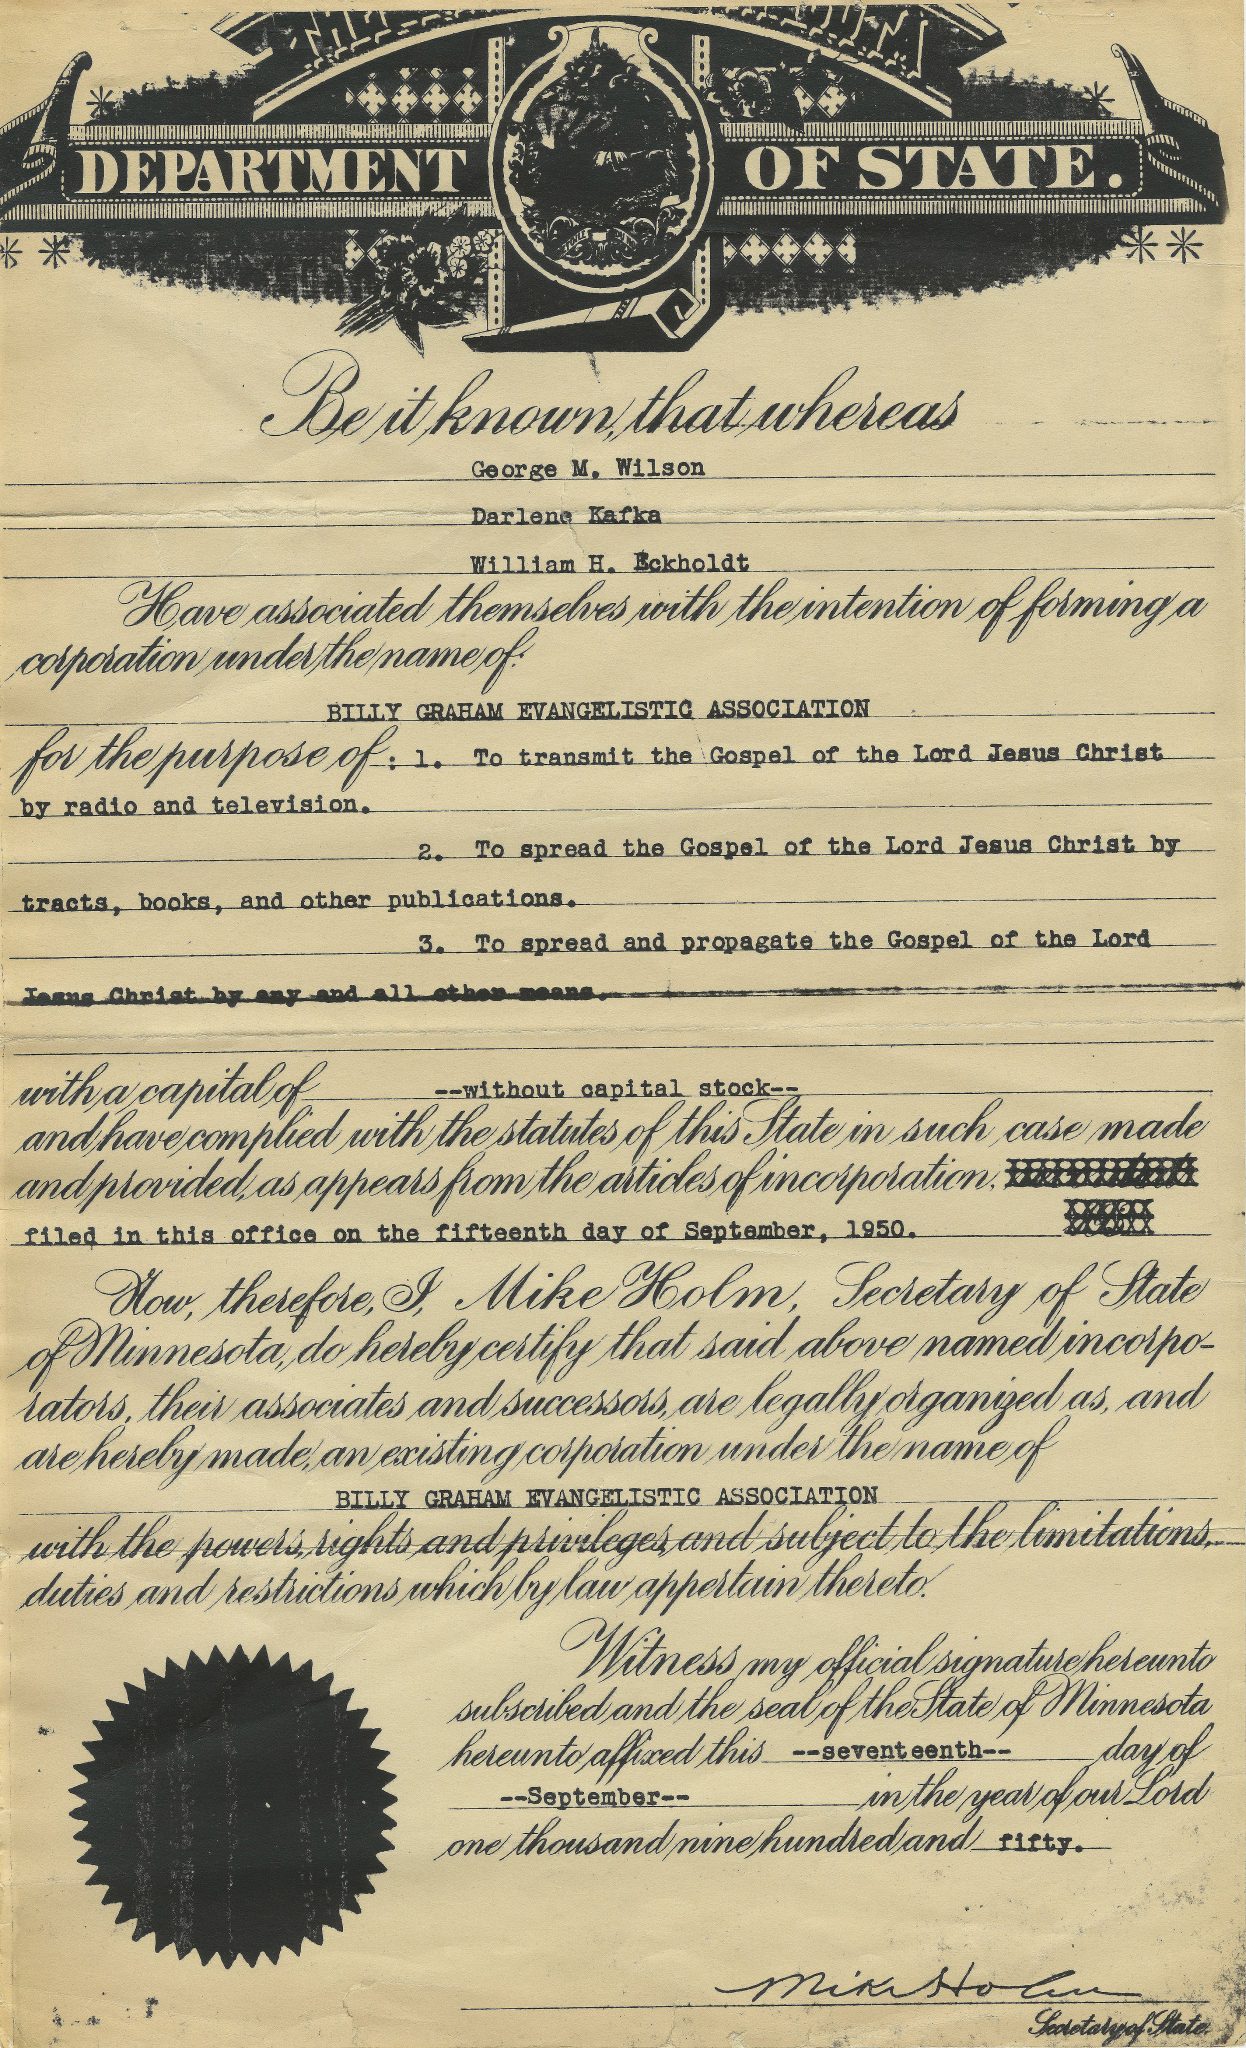 DEPARTMENT OF STATE.
Be it known, that whereas
George M. Wilson
Darlene Kafka
William H. Eckholdt
Have associated themselves with the intention of forming a
corporation under the name of:
BILLY GRAHAM EVANGELISTIC ASSOCIATION
for the purpose of: 1. To transmit the Gospel of the Lord Jesus Christ
by radio and television.
2. To spread the Gospel of the Lord Jesus Christ by
tracts, books, and other publications.
3. To spread and propagate the Gospel of the Lord
Jesus Christ by any and all other means.
with a capital of --without capital stock--
and have complied with the statutes of this State in such case made
and provided, as appears from the articles of incorporation,
filed in this office on the fifteenth day of September, 1950.
Now, therefore, I, Mike Holm, Secretary of State
of Minnesota, do hereby certify that said above named incorpo-
rators, their associates and successors, are legally organized as, and
are hereby made, an existing corporation under the name of
BILLY GRAHAM EVANGELISTIC ASSOCIATION
with the powers, rights and privileges, and subject to the limitations,
duties and restrictions which by law appertain thereto.
Witness my official signature hereunto
subscribed and the seal of the State of Minnesota
hereunto affixed this --seventeenth-- day of
--September-- in the year of our Lord
one thousand nine hundred and fifty.
Mike Holm
Secretary of State